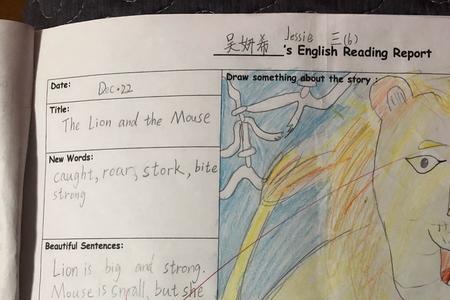 吴妍希 Jessie 三(6)
's English Reading Report
Date: Dec.22
Draw something about the story :
Title:
The Lion and the Mouse
New Words:
caught, roar, stork, bite
strong
Beautiful Sentences:
Lion is big and strong.
Mouse is small, but she